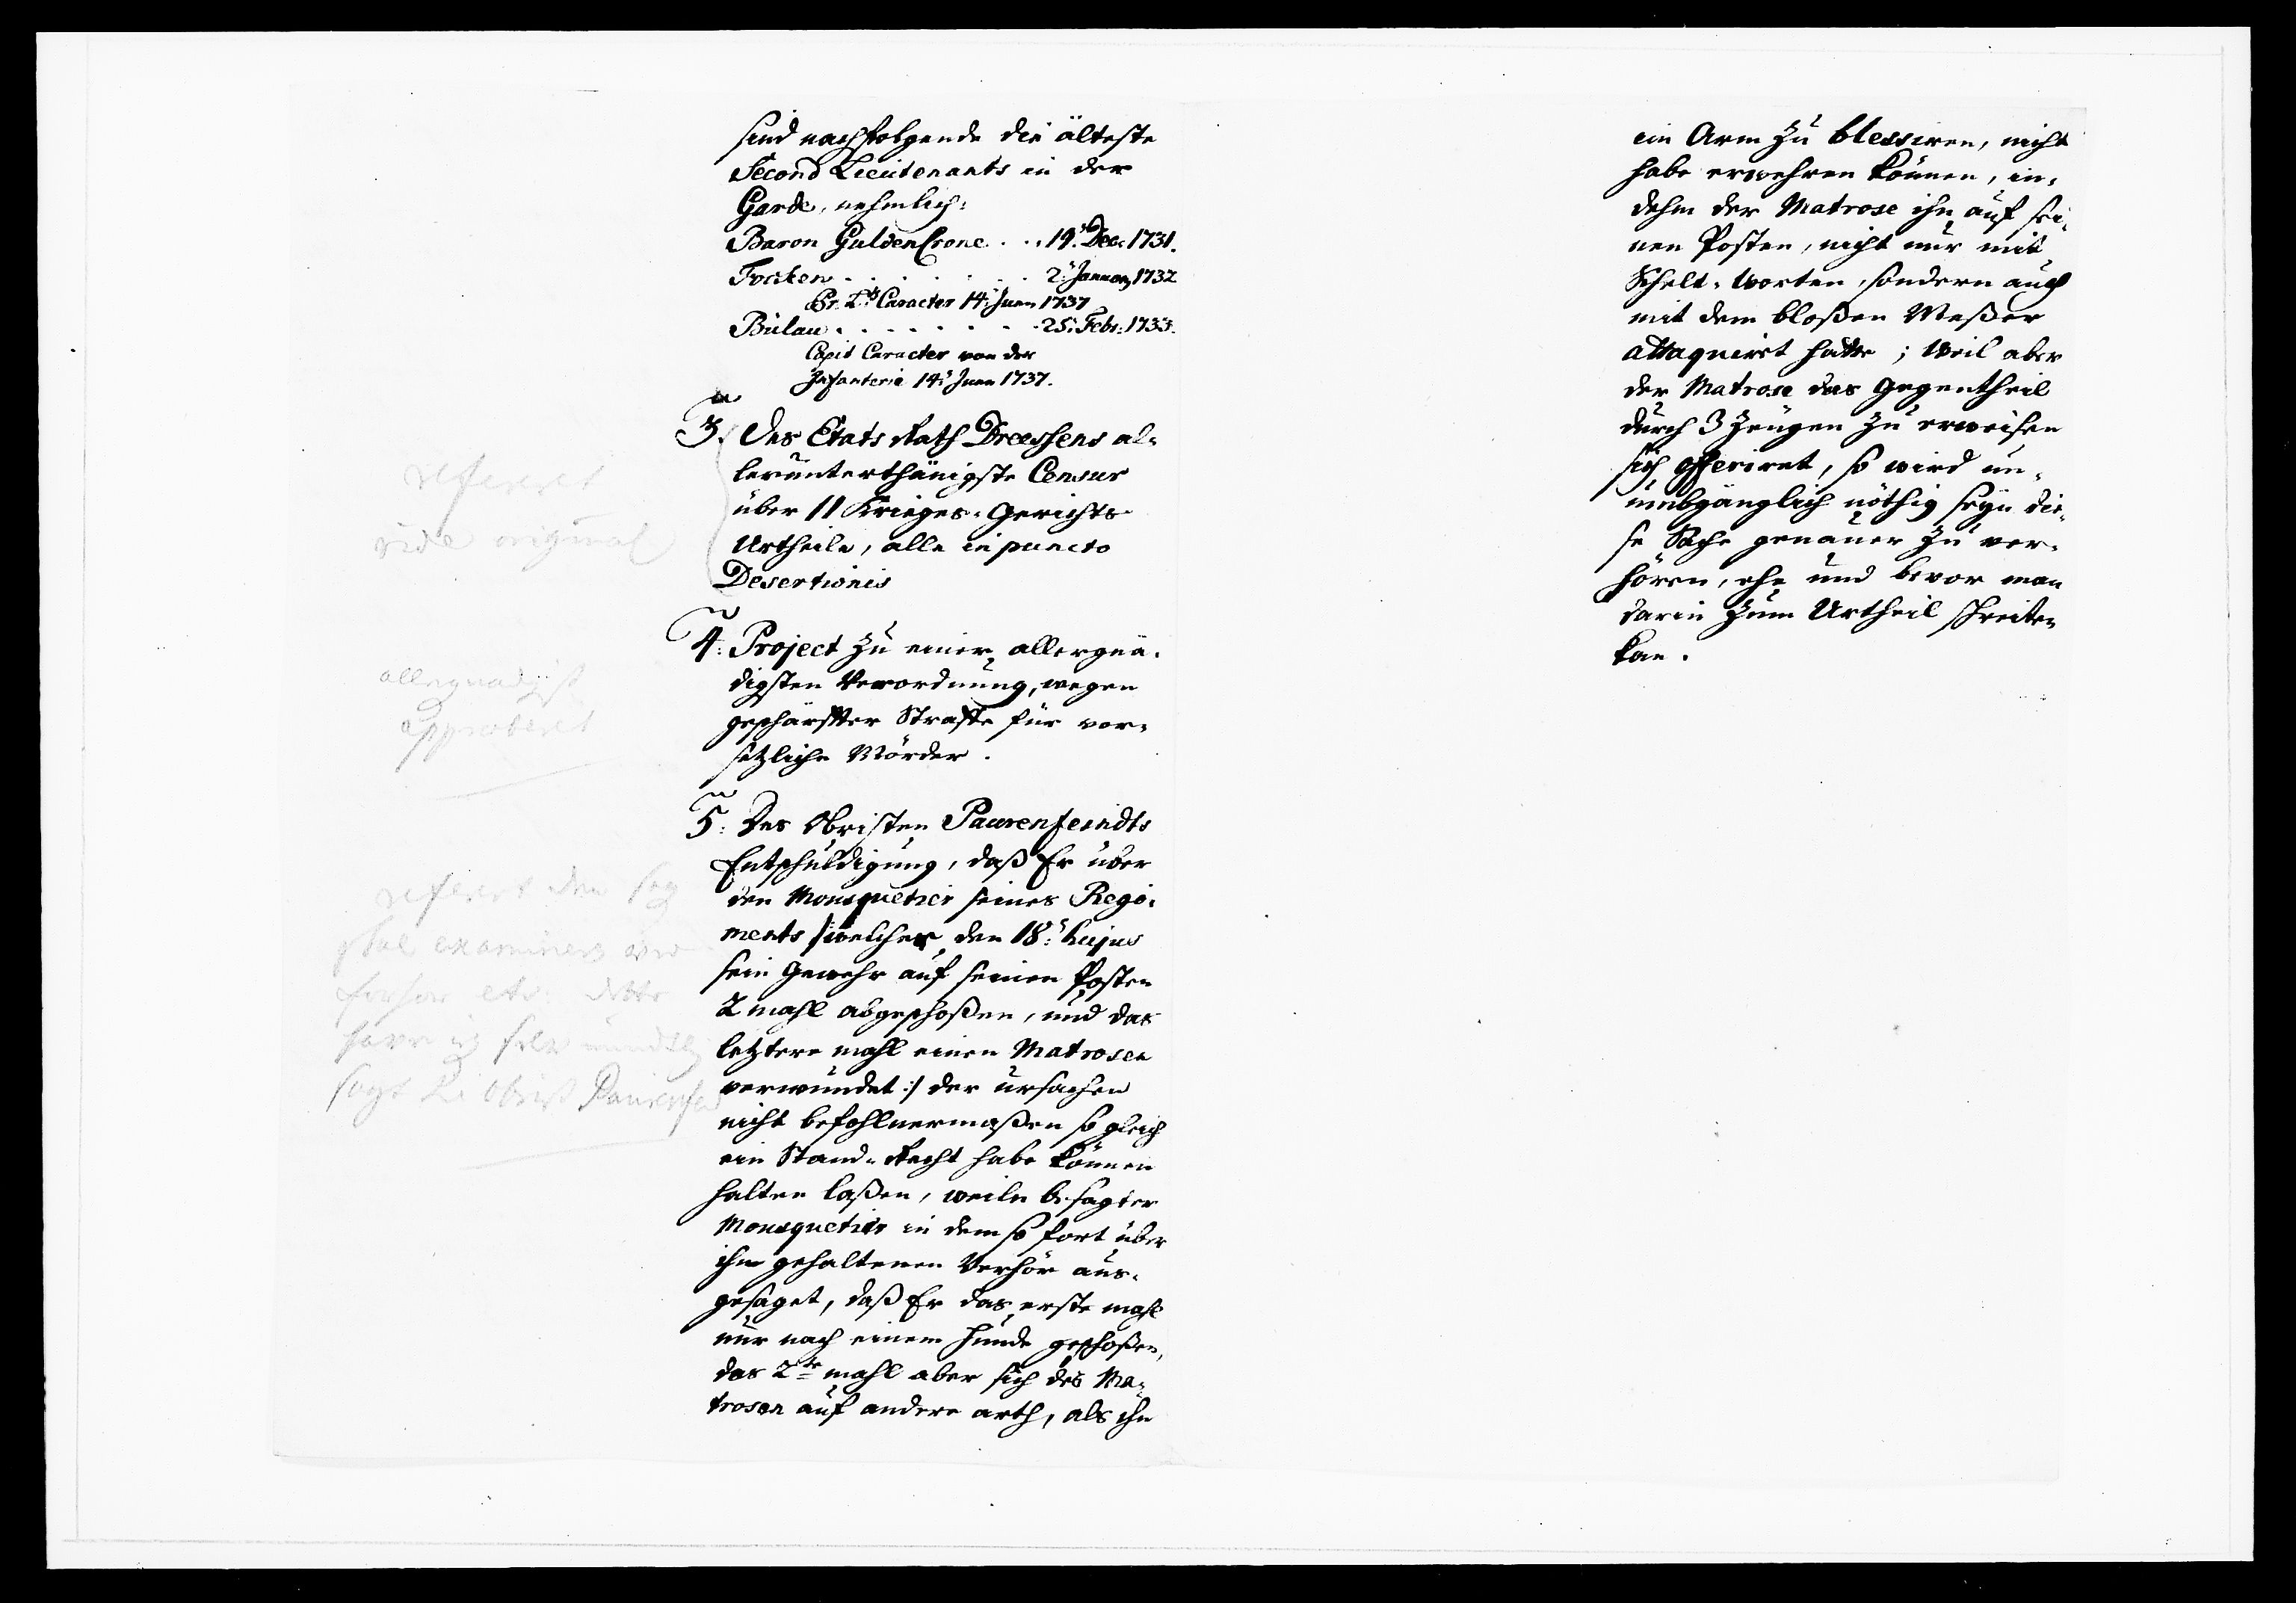 sind nachfolgende die älteste
Second Lieutenants in der
Garde, nehmlich:
Baron GuldenCrone . . . 19.t Dec: 1731.
. . . . . . 2.t January 1732
Pr. Lt. Caracter 14.t Juny 1737
Bülau . . . . . . . 25.t Febr: 1733.
Capit Caracter von der
Infanterie 14.t Juny 1737.
3. Des Etats Rath Dreessens al-
lerunterthänigste Censur
über 11 Krieges-Gerichts
Urtheile, alle in puncto
Desertionis
referiret
vide original
4: Project zu einer allergnä-
digsten Verordnung, wegen
geschärffter Straffe für vor-
setzliche Mörder.
allergnädigst
approbiret
5: Des Obristen Paurenfeindts
Entschuldigung, daß Er über
den Mousquetier seines Regi-
ments /:welcher den 18.t hujus
sein Gewehr auf seinen Posten
2 mahl abgeschoßen, und das
letztere mahl einen Matrosen
verwundet:/ der ursachen
nicht befohlnermaßen so gleich
ein Stand-Recht habe können
halten laßen, weiln besagter
Mousquetier in dem so fort über
ihn gehaltenen Verhör aus-
gesaget, daß Er das erste mahl
nur nach einem Hunde geschoßen,
das 2te mahl aber sich des Ma-
trosen auf andere arth, als ihn
referirt den
examiniren
sagt Obrist
ein Arm zu blessiren, nicht
habe erwehren können, in-
dehm der Matrose ihn auf sei-
nen Posten, nicht nur mit
Schelt-Worten, sondern auch
mit dem bloßen Meßer
attaquiret hätte; Weil aber
der Matrose das Gegentheil
durch 3 Zeugen zu erweisen
sich offeriret, so wird un-
umbgänglich nöthig seyn die-
se Sache genauer zu ver-
hören, ehe und bevor man
darin zum Urtheil schreiten
kan.